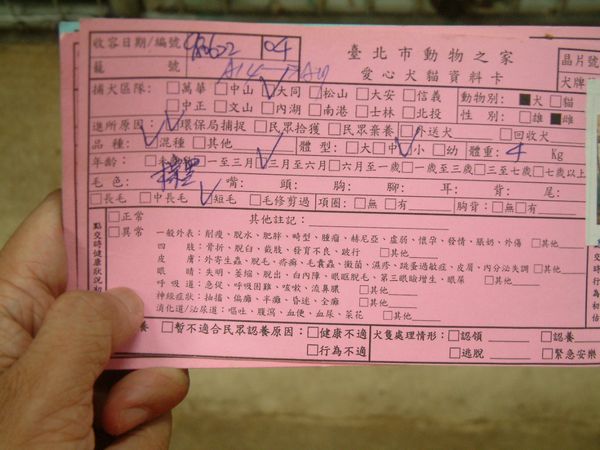 收容日期/編號 980622 04 臺北市動物之家 晶片號
籠 號 愛心犬貓資料卡 犬牌
捕犬區隊: □萬華 □中山 □大同 □松山 □大安 □信義 動物別: ■犬 □貓
□中正 □文山 □內湖 □南港 □士林 □北投 性 別: □雄 ■雌
進所原因: □環保局捕捉 □民眾拾獲 □民眾棄養 □外送犬 □回收犬
品 種: □混種 □其他 體 型: □大 □中 □小 □幼 體重: 4 Kg
年齡: □一至三月 □三月至六月 □六月至一歲 □一歲至三歲 □三至七歲 □七歲以上
毛 色: 嘴: 頭: 胸: 腳: 耳: 背: 尾:
□長毛 □中長毛 □短毛 □毛修剪過 項圈: □無 □有 胸背: □無 □有
點交時健康狀況初
□正常 其他註記:
□異常 一般外表: 削瘦、脫水、肥胖、畸型、腫瘤、赫尼亞、虛弱、懷孕、發情、脹奶、外傷 □其他
四 肢: 骨折、脫臼、截肢、發育不良、跛行 □其他
皮 膚: 外寄生蟲、脫毛、疥癬、毛囊蟲、黴菌、濕疹、跳蚤過敏症、皮屑、內分泌失調 □其他
眼 睛: 失明、萎縮、脫出、白內障、眼眶脫毛、第三眼瞼增生、眼屎 □其他
呼 吸 道: 急促、呼吸困難、咳嗽、流鼻膿 □其他
神經症狀: 抽搐、偏癱、半癱、昏迷、全癱 □其他
消化道/泌尿道: 嘔吐、腹瀉、血便、血尿、菜花 □其他
養 □暫不適合民眾認養原因: □健康不適 犬隻處理情形: □認領 □認養
□行為不適 □逃脫 □緊急安樂